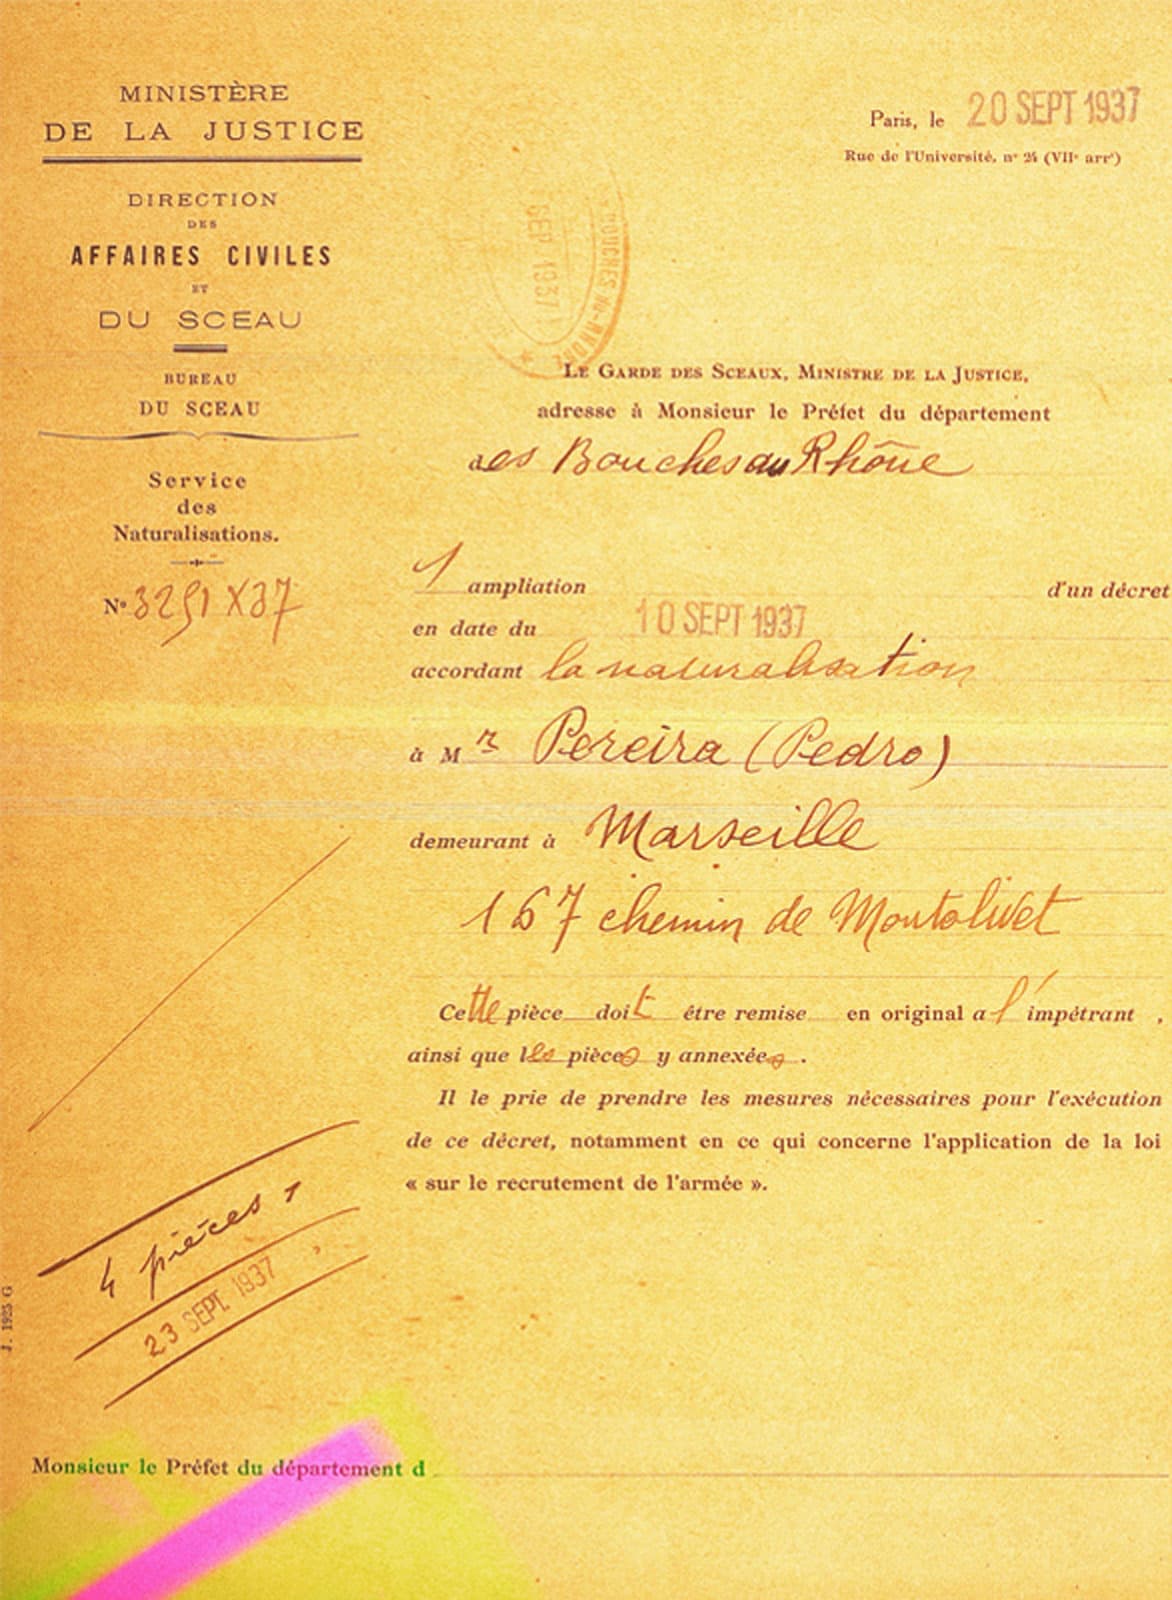 MINISTÈRE
DE LA JUSTICE
DIRECTION
DES
AFFAIRES CIVILES
ET
DU SCEAU
BUREAU
DU SCEAU
Service
des
Naturalisations.
N° 3251 X37
Paris, le 20 SEPT 1937
Rue de l'Université, n° 24 (VIIe arrt)
BOUCHES-DU-RHÔNE
SEP 1937
LE GARDE DES SCEAUX, MINISTRE DE LA JUSTICE,
adresse à Monsieur le Préfet du département
des Bouches du Rhône
1 ampliation d'un décret
en date du 10 SEPT 1937
accordant la naturalisation
à Mr Pereira (Pedro)
demeurant à Marseille
167 chemin de Montolivet
Cette pièce doit être remise en original a l'impétrant,
ainsi que les pièces y annexées.
Il le prie de prendre les mesures nécessaires pour l'exécution
de ce décret, notamment en ce qui concerne l'application de la loi
« sur le recrutement de l'armée ».
4 pièces
23 SEPT. 1937
J. 1925 G
Monsieur le Préfet du département d